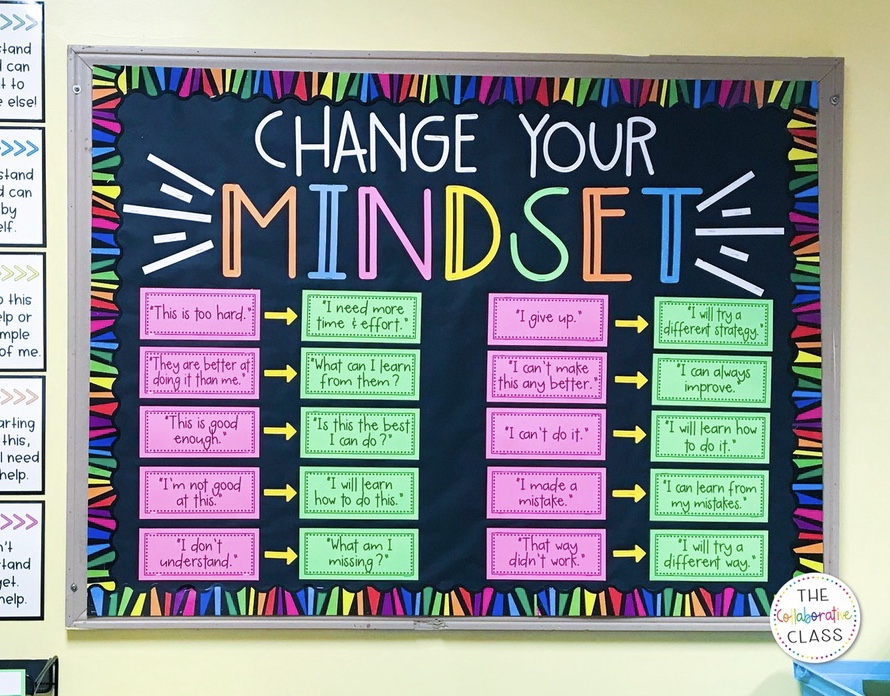 CHANGE YOUR
MINDSET
"This is too hard."
"I need more
time & effort."
"They are better at
doing it than me."
"What can I learn
from them?"
"This is good
enough."
"Is this the best
I can do?"
"I'm not good
at this."
"I will learn
how to do this."
"I don't
understand."
"What am I
missing?"
"I give up."
"I will try a
different strategy."
"I can't make
this any better."
"I can always
improve."
"I can't do it."
"I will learn how
to do it."
"I made a
mistake."
"I can learn from
my mistakes."
"That way
didn't work."
"I will try a
different way."
can
to
else!
can
by
this
or
of me.
this,
need
help.
help.
THE
Collaborative
CLASS